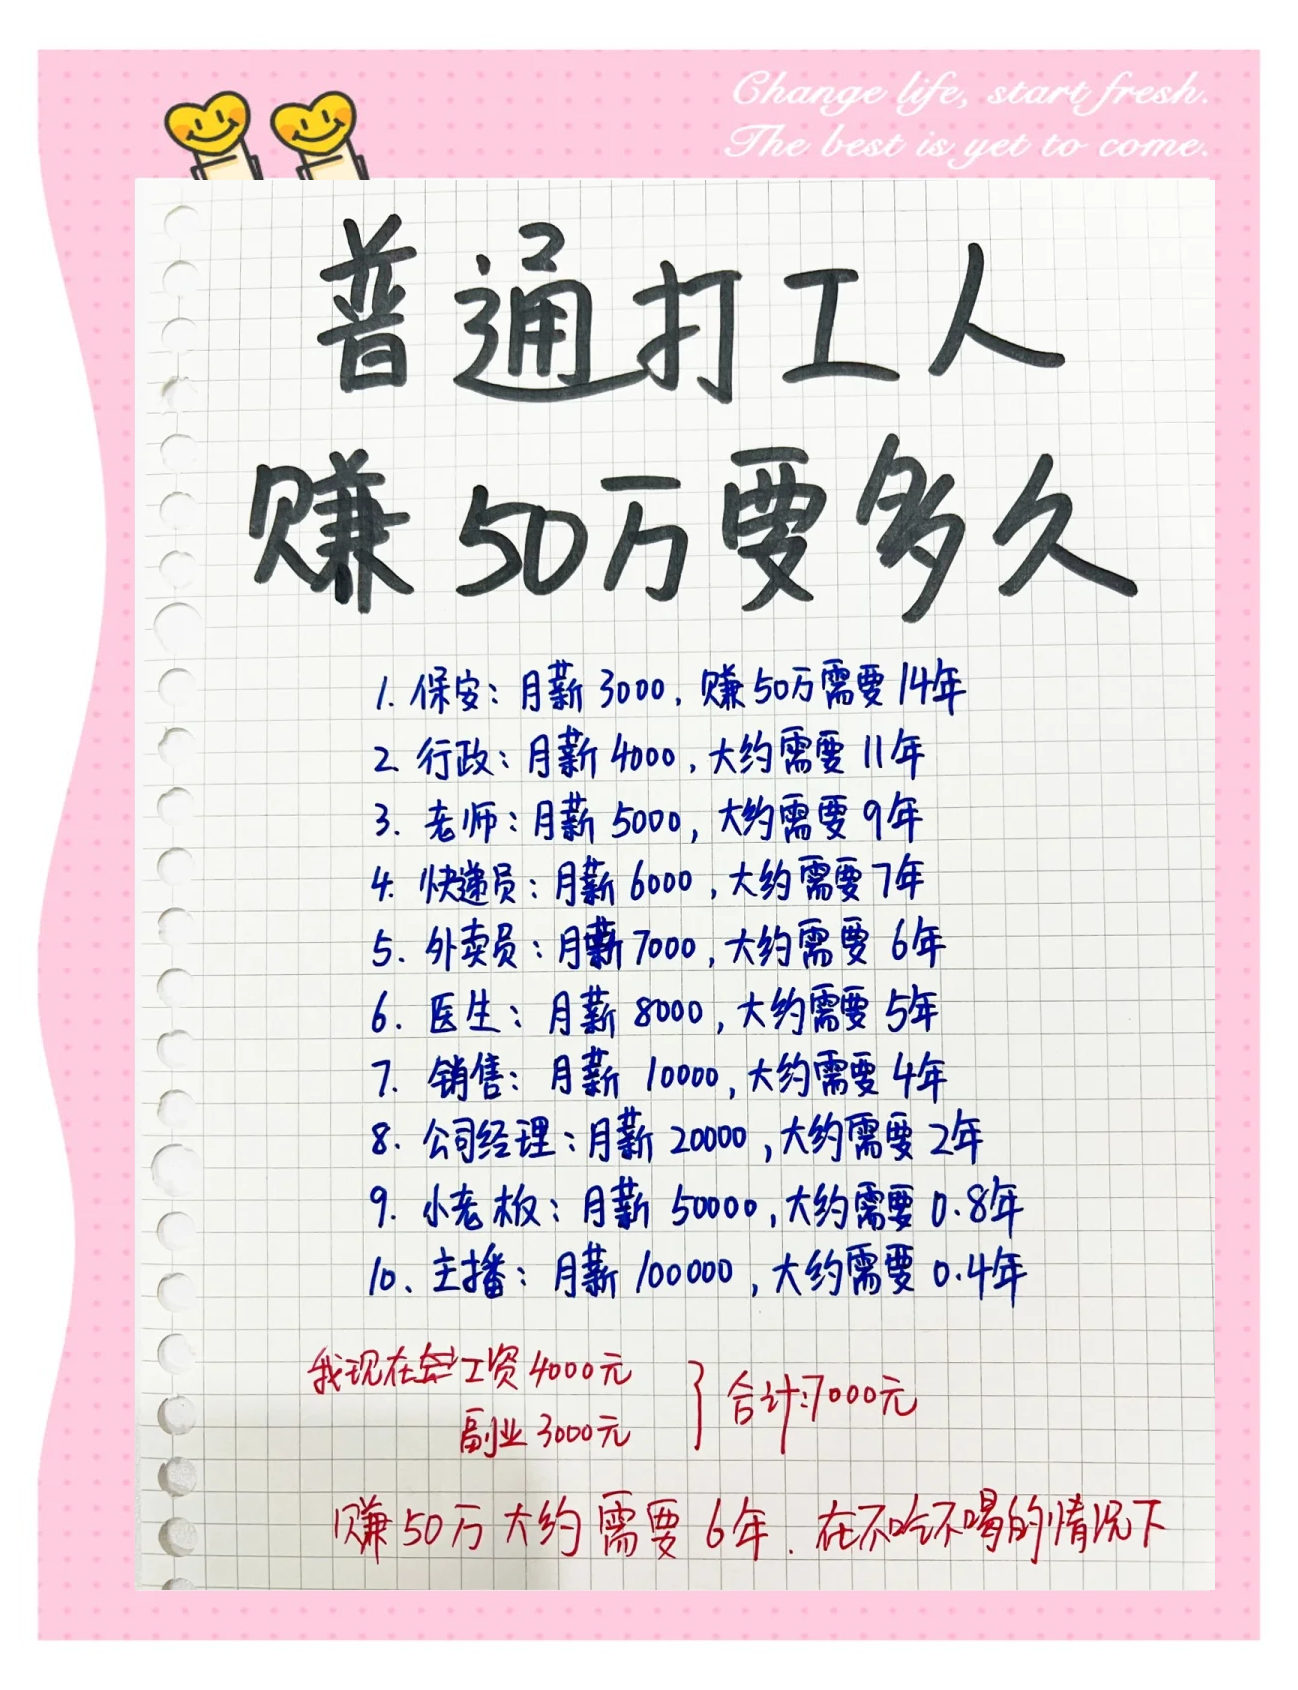 Change life, start fresh.
The best is yet to come.
普通打工人
赚50万要多久
1. 保安：月薪3000，赚50万需要14年
2. 行政：月薪4000，大约需要11年
3. 老师：月薪5000，大约需要9年
4. 快递员：月薪6000，大约需要7年
5. 外卖员：月薪7000，大约需要6年
6. 医生：月薪8000，大约需要5年
7. 销售：月薪10000，大约需要4年
8. 公司经理：月薪20000，大约需要2年
9. 小老板：月薪50000，大约需要0.8年
10、主播：月薪100000，大约需要0.4年
我现在工资4000元
副业3000元
合计：7000元
赚50万大约需要6年．在不吃不喝的情况下